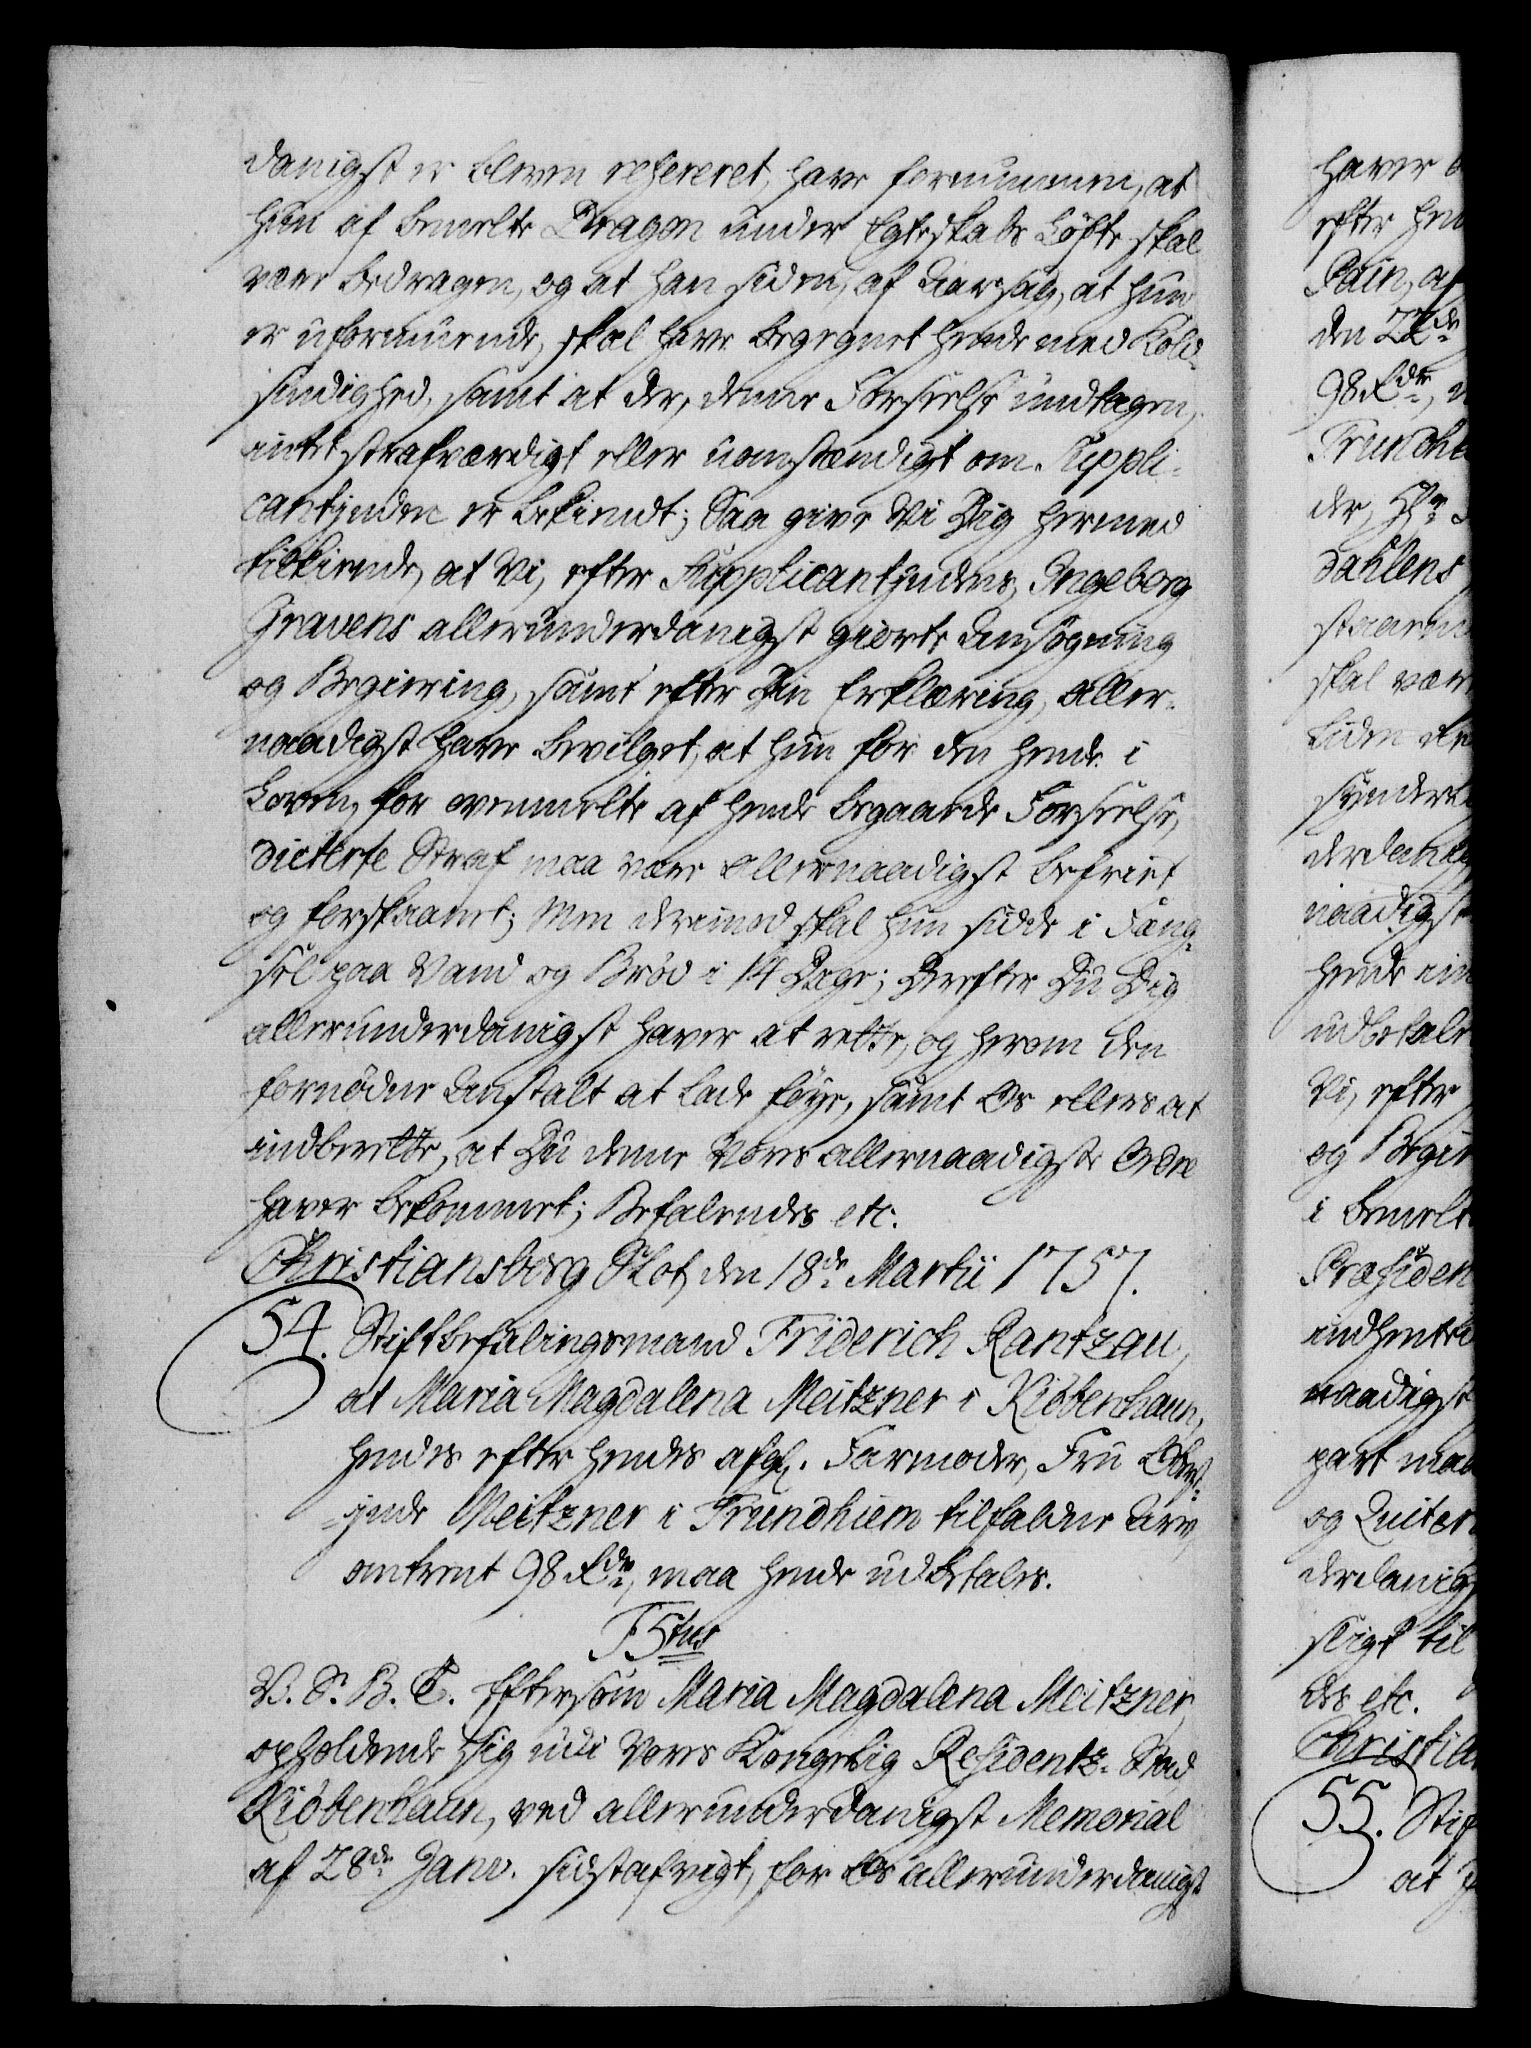 danigst er bleven refereret, have fornummen, at
hun af bemelte Dragon under Egteskabs Løfte skal
være bedragen, og at han siden, af Aarsag, at hun
er uformuende, skal have begegnet hende med Kold-
sindighed, samt at der, denne Forseelse undtagen,
intet strafværdigt eller uanstændigt om Suppli-
cantinden er bekiendt; Saa give Vi Dig hermed
tilkiende, at Vi, efter Supplicantindens, Ingeborg
Gravens allerunderdanigst giorte Ansøgning
og Begiering, samt efter Din Erklæring, aller-
naadigst have bevilget, at hun for den hende i
Loven, for ovenmelte af hende begaaede Forseelse,
dicterte Straf maa være allernaadigst befriet
og forskaanet; Men derimod skal hun sidde i Fæng-
sel paa Vand og Brød i 14 Dage; Derefter Du Dig
allerunderdanigst haver at rette, og herom den
fornødne Anstalt at lade føye, samt Os ellers at
indberette, at Du denne Vores allernaadigste Ordre
haver bekommet; Befalendes etc.
Christiansborg Slot, den 18de Martii 1757.
54. Stiftbefalingsmand Friderich Rantzau,
at Maria Magdalena Meitzner i Kiøbenhaun,
hendes efter hendes afgl. Farmoder, Fru Oberst-
inde Meitzner i Trundhiem tilfaldne Arv,
omtrent 98 Rdr, maa hende udbetales.
F5tus
V. S. B. T. Eftersom Maria Magdalena Meitzner,
opholdende sig udi Vores Kongelig Residentz-Stad
Kiøbenhaun, ved allerunderdanigst Memorial
af 28de Janv. sidstafvigt, for Os allerunderdanigst
haver
efter hen
den 22de
98 Rdr,
Trundhi
der,
dahlens
skal vær
liden
naadigst
hende
udbetale
Vi, efter
og Begier
i bemelt
Præsiden
indhente
naadigst
part maa
og
derdanig
til
des etc.
Christia
55. Stif
at